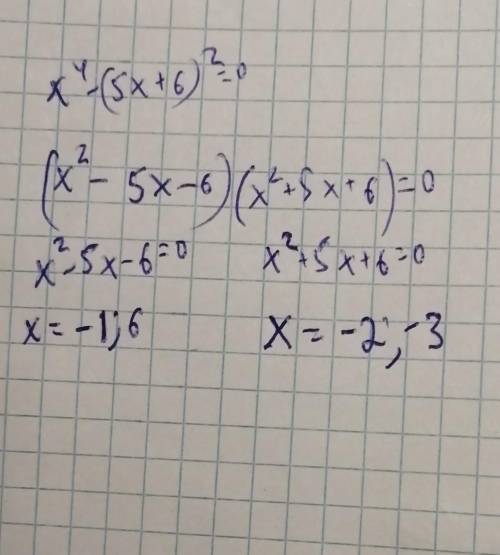 x⁴-(5x+6)²=0
(x²-5x-6)(x²+5x+6)=0
x²-5x-6=0 x²+5x+6=0
x=-1;6 x=-2;-3